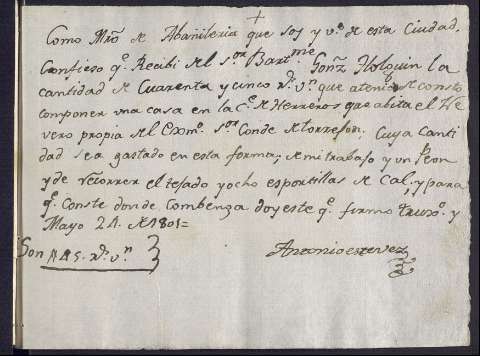 Como Mrõ de Abañileria que soy y vº de esta Ciudad,
Confieso qe Recibi del sor Bartme Gonz Holguin la
cantidad de Cuarenta y cinco rs vn que a tenido de costo
componer una casa en la Ce de Herreros que abita el
vero propia del Exmo sor Conde de torrefon; Cuya Canti
dad se a gastado en esta forma; de mi trabajo y un Peon
y de recorrer el tejado y ocho esportillas de Cal, y para
qe Conste donde Combenza doy este qe firmo truxo y
Mayo 24 de 1801=
Son 45 rs vn
Antonio estevez